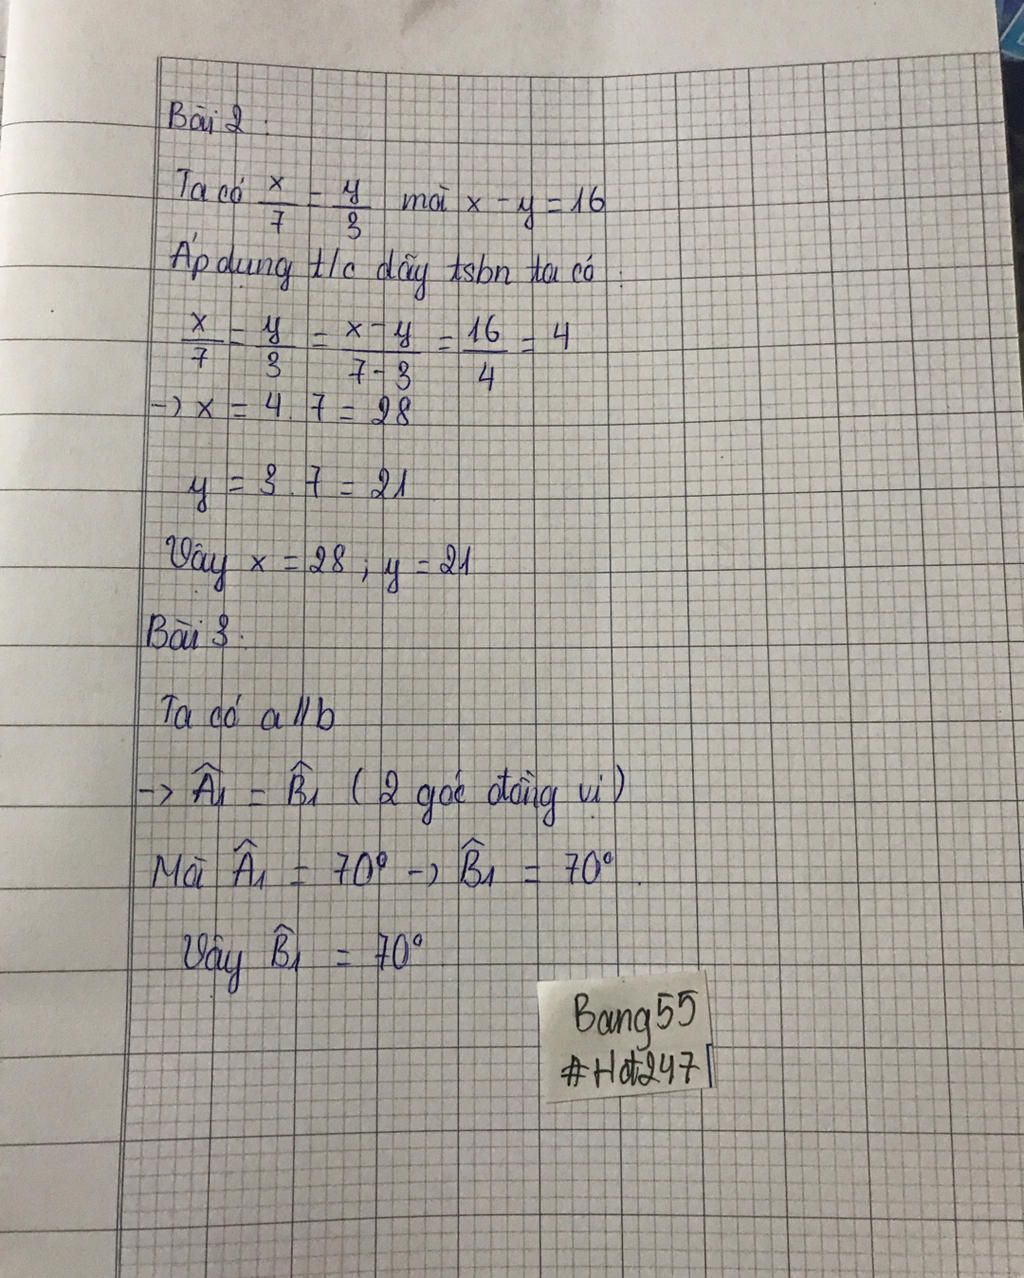 Bài 2 :
Ta có x/7 = y/3 mà x - y = 16
Áp dụng t/c dãy tsbn ta có :
x/7 = y/3 = x - y/7 - 3 = 16/4 = 4
-> x = 4 . 7 = 28
y = 3 . 7 = 21
Vậy x = 28 ; y = 21
Bài 3 :
Ta có a // b
-> Â1 = B̂1 ( 2 góc đồng vị )
Mà Â1 = 70° -> B̂1 = 70° .
Vậy B̂1 = 70°
Bang55
#Hot247